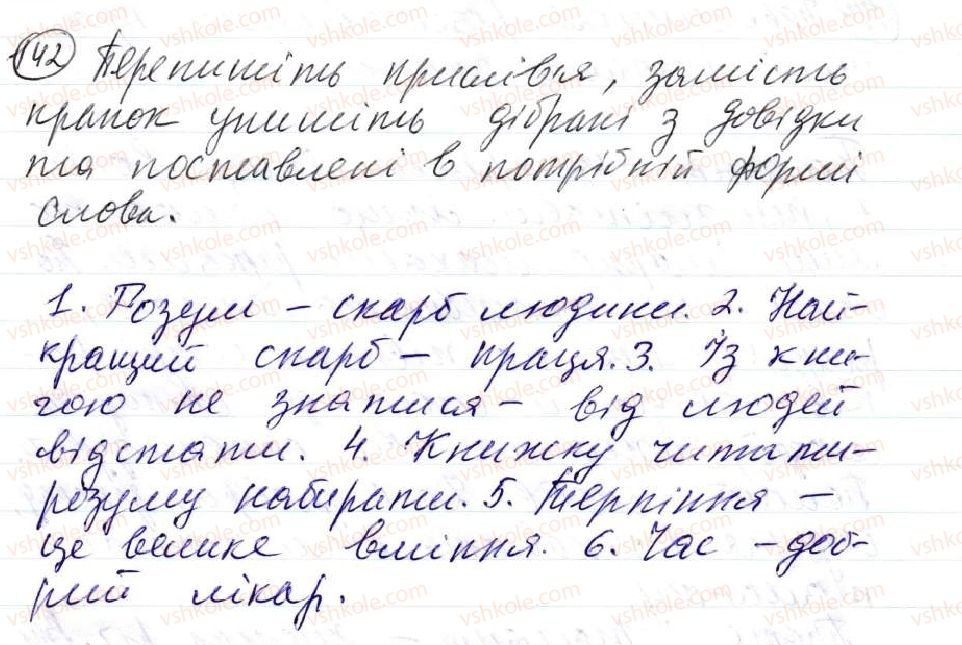 142 Перепишіть прислівя, замість
крапок упишіть дібрані з довідки
та поставлені в потрібній формі
слова.
1. Розум – скарб людини. 2. Най-
кращий скарб – праця. 3. Із кни-
гою не знатися – від людей
відстати. 4. Книжку читати –
розуму набирати. 5. Терпіння –
це велике вміння. 6. Час – доб-
рий лікар.